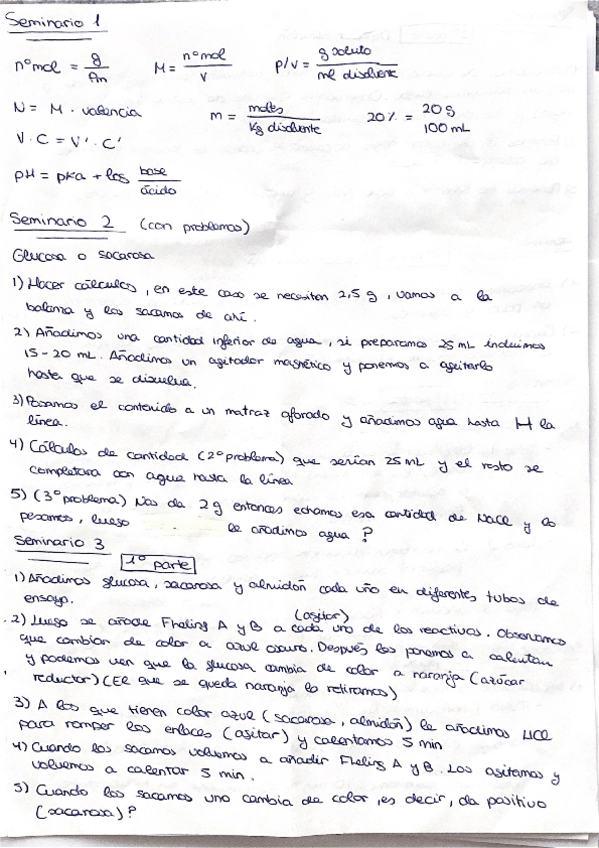 Seminario 1
nº mol = g / Pm    M = nº mol / V    P/V = g soluto / ml disolvente
N = M · valencia    m = moles / Kg disolvente    20% = 20 g / 100 mL
V · C = V' · C'
pH = pKa + log base / ácido
Seminario 2 (con problemas)
Glucosa o sacarosa
1) Hacer cálculos, en este caso se necesitan 2,5 g, vamos a la
balanza y los sacamos de ahí.
2) Añadimos una cantidad inferior de agua, si preparamos 25 mL
15 - 20 mL. Añadimos un agitador magnético y ponemos a agitarlo
hasta que se disuelva.
3) Pasamos el contenido a un matraz aforado y añadimos agua hasta la
línea.
4) Cálculos de cantidad (2º problema) que serían 25 mL y el resto se
completara con agua hasta la línea
5) (3º problema) Nos da 2 g entonces echamos esa cantidad de NaCl y lo
pesamos, luego le añadimos agua ?
Seminario 3
1º parte
1) Añadimos glucosa, sacarosa y almidón cada uno en diferentes tubos de
ensayo.
(agitar)
2) Luego se añade Fheling A y B a cada uno de los reactivos. Observamos
que cambian de color a azul oscuro. Después los ponemos a calentar
y podemos ver que la glucosa cambia de color a naranja (azúcar
reductor) (El que se queda naranja lo retiramos)
3) A los que tienen color azul (sacarosa, almidón) le añadimos HCl
para romper los enlaces (agitar) y calentamos 5 min
4) Cuando los sacamos volvemos a añadir Fheling A y B. Los agitamos y
volvemos a calentar 5 min.
5) Cuando los sacamos uno cambia de color, es decir, da positivo
(sacarosa)?